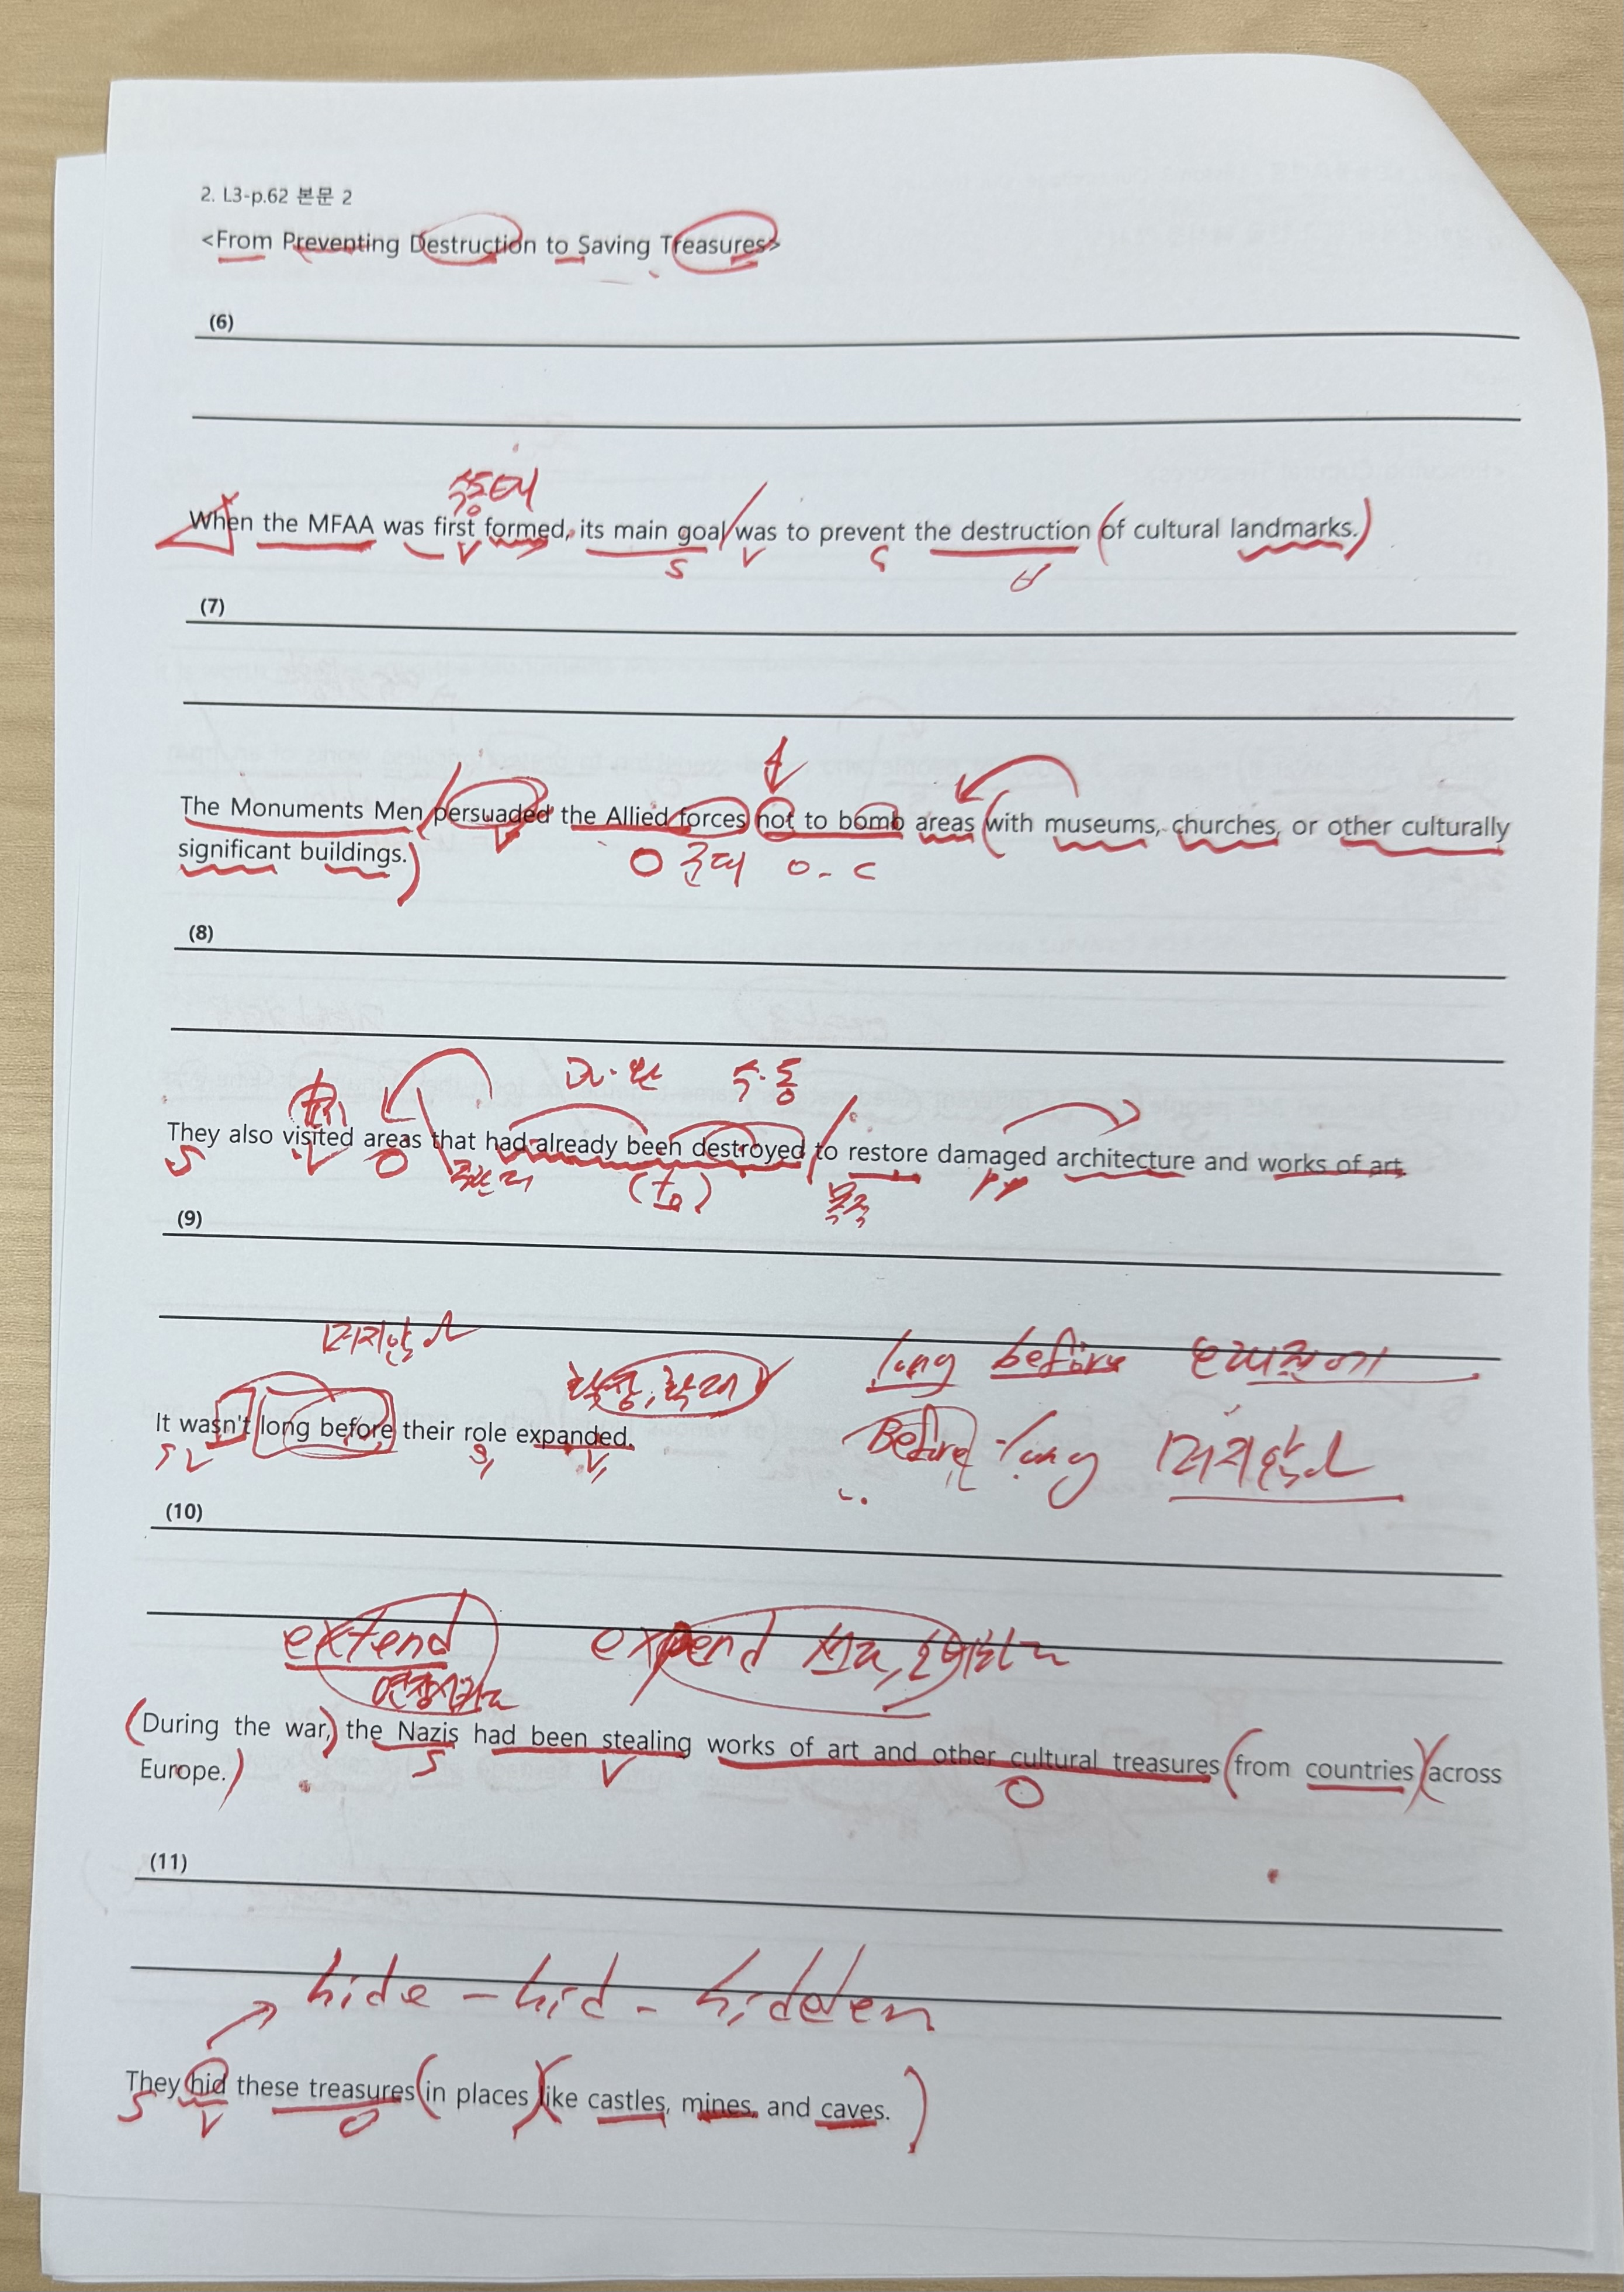 2. L3-p.62 본문 2
<From Preventing Destruction to Saving Treasures>
(6)
수동태
When the MFAA was first formed, its main goal was to prevent the destruction of cultural landmarks.
V S V C
(7)
The Monuments Men persuaded the Allied forces not to bomb areas with museums, churches, or other culturally
significant buildings.
V O 군대 O.C
(8)
과.완 수.동
They also visited areas that had already been destroyed to restore damaged architecture and works of art.
S V O 주.관.대 목적 P.P
(9)
머지않아
확장, 확대
long before 오래전에
It wasn't long before their role expanded.
S V S, V,
Before long 머지않아
(10)
extend expend
연장하다
During the war, the Nazis had been stealing works of art and other cultural treasures from countries across
Europe.
S V O
(11)
hide - hid - hidden
They hid these treasures in places like castles, mines, and caves.
S V O